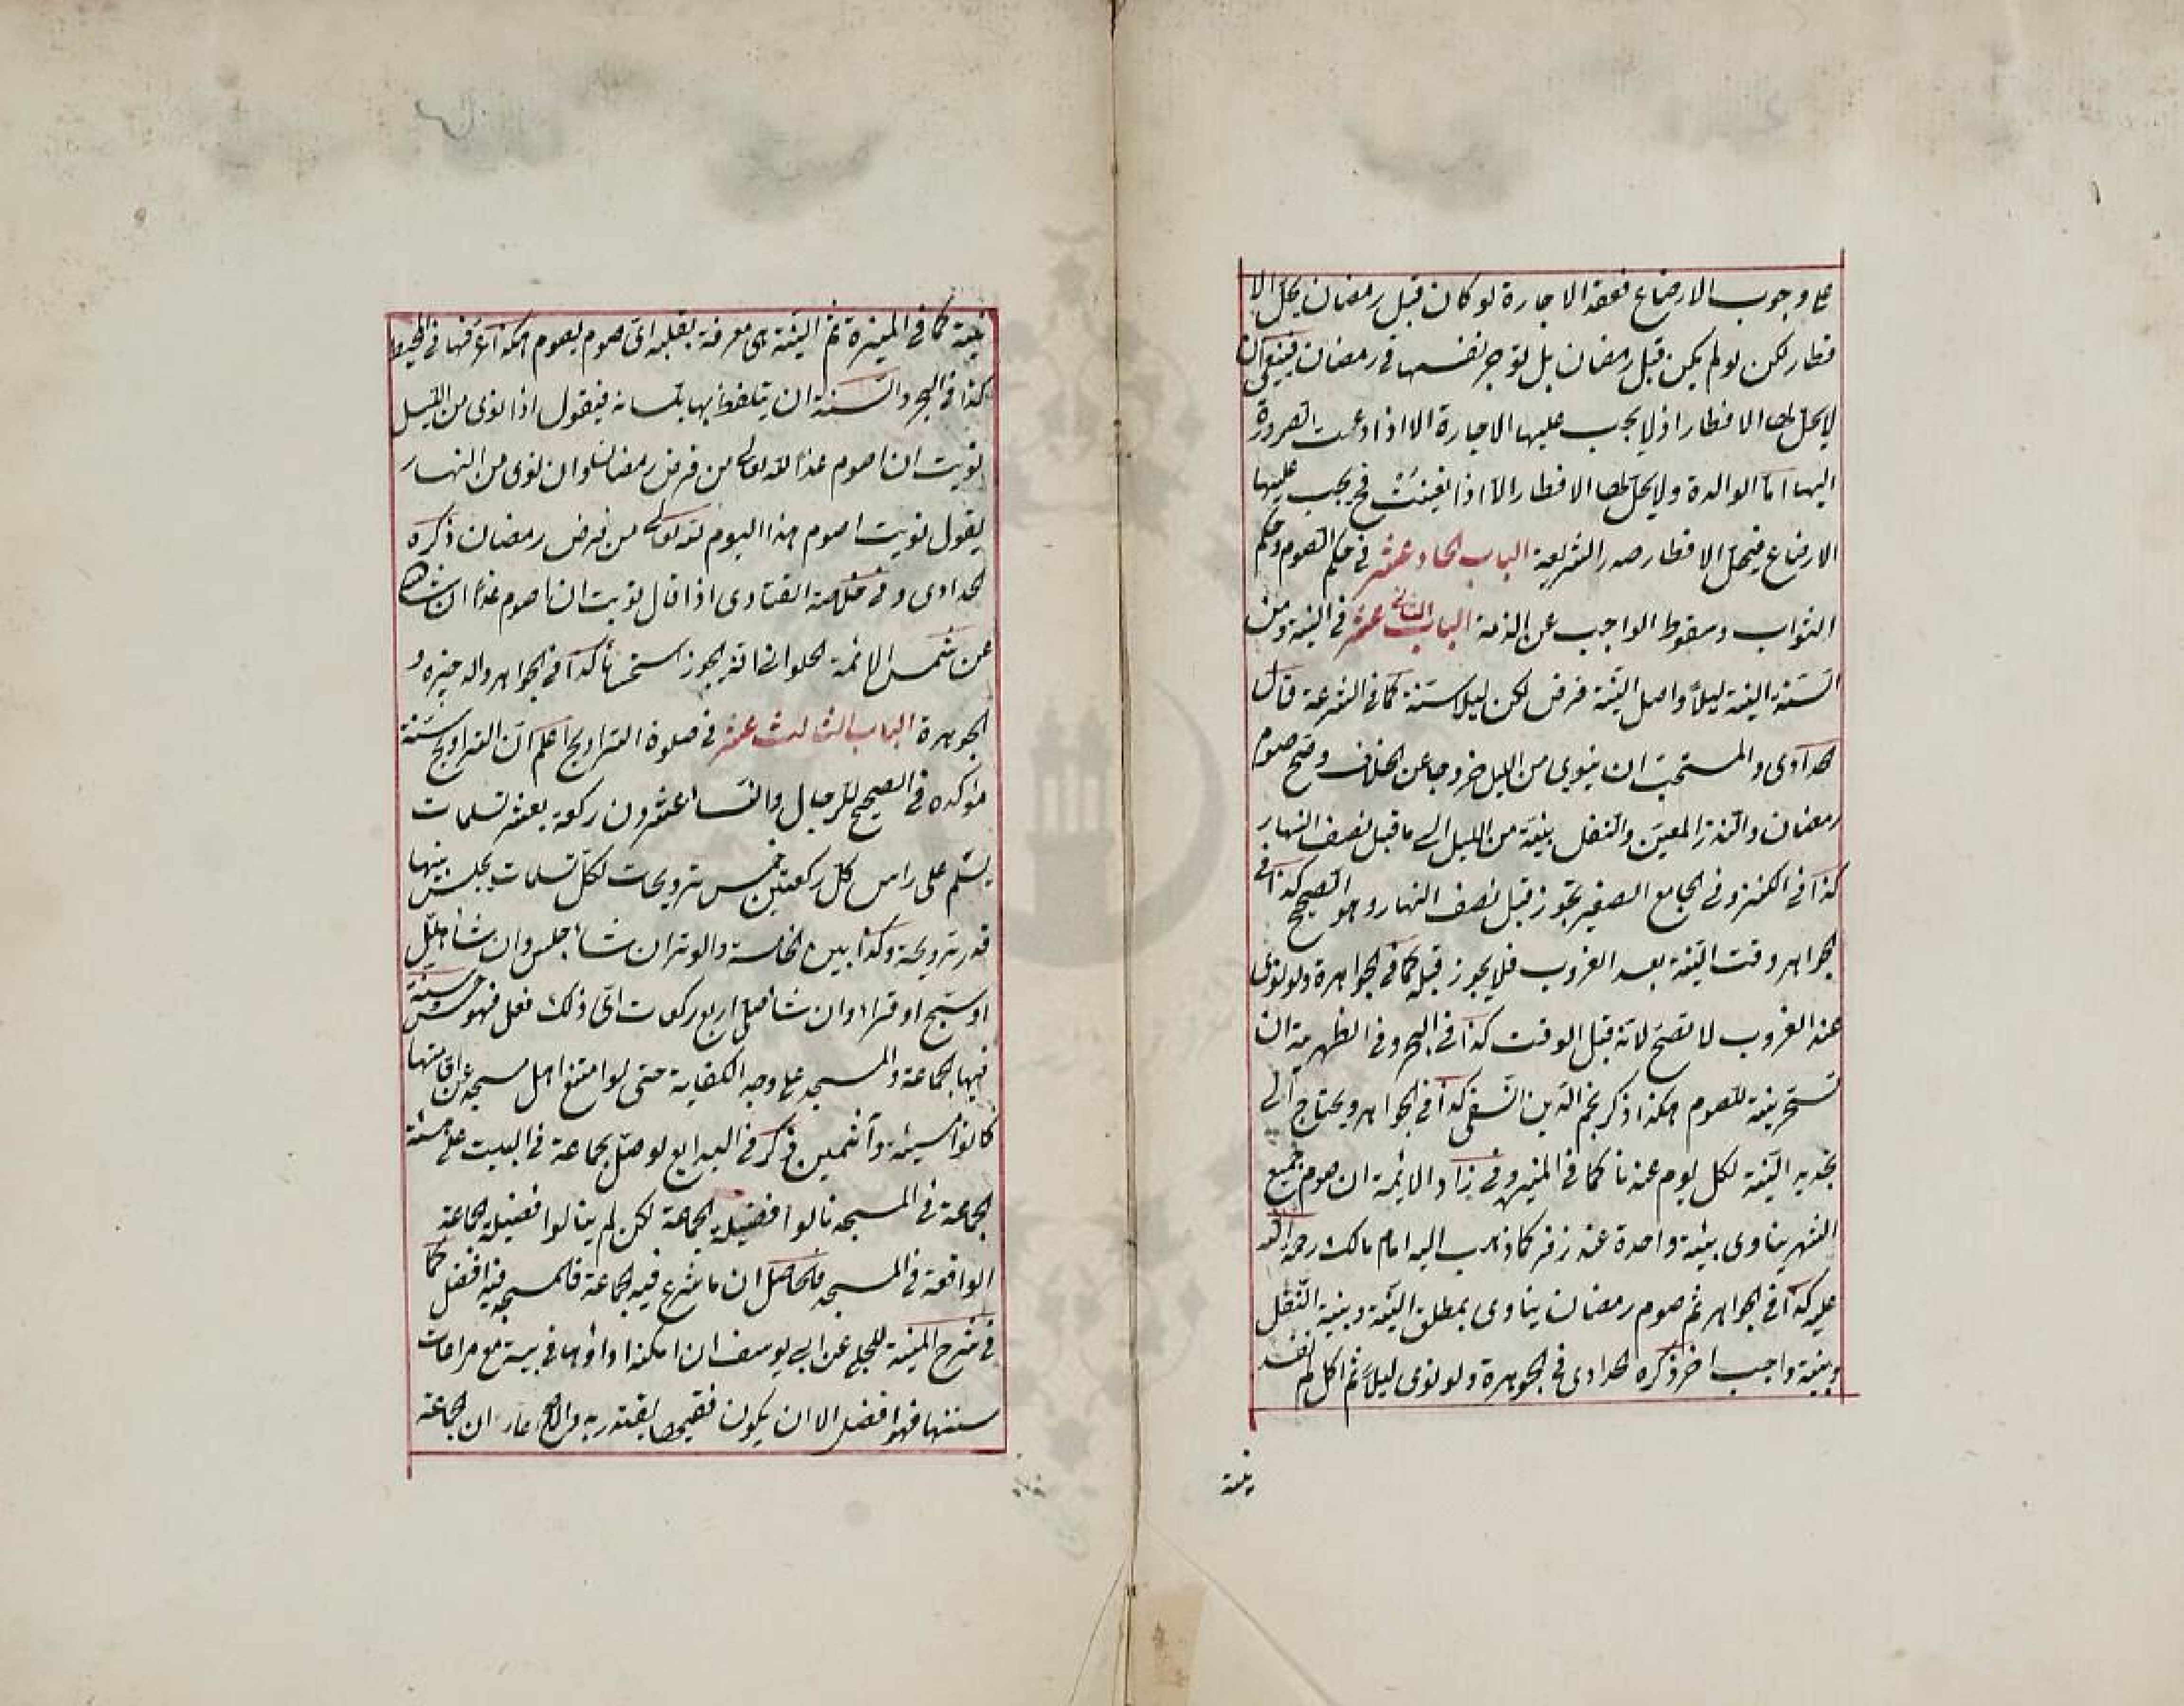 على وجوب الارضاع فعقد الاجارة لو كان قبل رمضان يحل الا
فطار لكن لو لم يكن قبل رمضان بل توجر نفسها في رمضان فينبغي ان
لا يحل لها الافطار اذ لا يجب عليها الاجارة الا اذا دعت الضرورة
اليها اما الوالدة ولا يحل لها الافطار الا اذا تعينت فح يجب عليها
الارضاع فيحل الافطار صدر الشريعة الباب الحاد عشر في حكم الصوم وحكم
الثواب وسقوط الواجب عن الذمة الباب الثاني عشر في النية ومن
السنة النية ليلا واصل النية فرض لكن ليلا سنة كما في الشرعة قال
الحدادى والمستحب ان ينوى من الليل خروجا عن الخلاف وصح صوم
رمضان والنذر المعين والنفل بنية من الليل الى ما قبل نصف النهار
كذا في الكنز وفي الجامع الصغير يجوز قبل نصف النهار وهو الصحيح كذا في
الجواهر وقت النية بعد الغروب فلا يجوز قبله كما في الجواهرة ولو نوى
عند الغروب لا تصح لانه قبل الوقت كذا في البحر وفي الظهيرية ان
تسحر بنية للصوم هكذا ذكر نجم الدين النسفى كذا في الجواهر ويحتاج الى
تجديد النية لكل يوم عندنا كما في المنية وفي زاد الائمة ان صوم جميع
الشهر يتاوى بنية واحدة عند زفر كما ذهب اليه امام مالك رحمة الله
عليه كذا في الجواهر ثم صوم رمضان يتاوى بمطلق النية وبنية النفل
وبنية واجب اخر ذكره الحدادى في الجوهرة ولو نوى ليلا ثم اكل لم تفسد
نيته
نيته كما في المنية ثم النية هى معرفة بقلبه اى صوم يصوم هكذا عرفتها في المحيط
كذا في البحر والسنة ان يتلفظ بها بلسانه فيقول اذا نوى من الليل
نويت ان اصوم غدا لله تعالى من فرض رمضان وان نوى من النهار
يقول نويت اصوم هذا اليوم لله تعالى من فرض رمضان ذكره
الحدادى وفي خلاصة الفتاوى اذا قال نويت ان اصوم غدا ان شاء الله
عن شمس الائمة الحلوانى انه يجوز استحسانا كذا في الجواهر والذخيرة و
الجوهرة الباب الثالث عشر في صلوة التراويح اعلم ان التراويح سنة
مؤكدة في الصحيح للرجال والنساء عشرون ركعة بعشر تسليمات
يسلم على راس كل ركعتين خمس ترويحات لكل تسليمات يجلس بينها
قدر ترويحة وكذا بين الخامسة والوتر ان شاء جلس وان شاء هلل
او سبح او قراء وان شاء صلى اربع ركعات اى ذلك فعل فهو حسن وسنة
فيها الجماعة والمسجد على وجه الكفاية حتى لو امتنع اهل مسجد عن اقامتها
كانوا مسيئة وآثمين ذكر في البدايع لو صلى بجماعة في البيت على هيئة
الجماعة في المسجد نالوا فضيلة الجماعة لكن لم ينالوا فضيلة الجماعة
الواقعة في المسجد فالحاصل ان ما شرع فيه الجماعة فالمسجد فيه افضل كما
في شرح المنية للحلبى عن ابي يوسف ان امكنه اداؤها في بيته مع مراعات
سننها فهو افضل الا ان يكون فقيها يقتدر به ان الجماعة